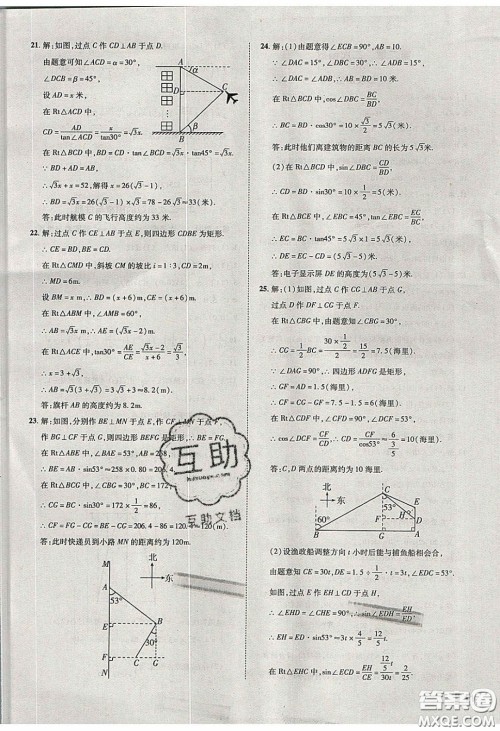 21. 解:如图,过点 C 作 CD⊥AB 于点 D.
由题意可知∠ACD=α=30°,
∠DCB=β=45°,
设 AD=x 米,
在 Rt△ACD 中,
CD=AD/tan∠ACD=x/tan30°=√3x(米).
在 Rt△BCD 中,BD=CD·tan45°=√3x·tan45°=√3x.
∵BD+AD=AB,
∴√3x+x=52,解得 x≈
答:此时航模 C 的飞行高度约为 33 米.
22. 解:过点 C 作 CE⊥AB 于点 E,则四边形 CDBE 为矩形.
∴CE=BD,BE=CD.
在 Rt△CDM 中,斜坡 CM 的坡比 i=1:3,CD=2m,
∴MD=6m.
设 BM=x m,则 BD=(x+6)m,∴CE=(x+6)m.
在 Rt△ABM 中,∠AMB=60°,
∴AB=√3x m,∴AE=(√3x-2)m.
在 Rt△ACE 中,tan30°=AE/CE=(√3x-2)/(x+6)=√3/3,
∴x=3+√3,
∴AB=√3(3+√3)=3√3+3≈8.2(m).
答:旗杆 AB 的高度约为 8.2m.
23. 解:如图,分别作 BE⊥MN 于点 E,作 CF⊥MN 于点 F,
作 BG⊥CF 于点 G,则四边形 BEFG 是矩形,∴BE=FG.
在 Rt△ABE 中,∠BAE=53°,AB=258,
∴BE=AB·sin53°≈258×0.80=206.4.
在 Rt△CBG 中,∠CBG=30°,BC=172,
∴CG=BC·sin30°=172×1/2=86.
∴CF=FG-CG=BE-CG=206.4-86=120.4≈120.
答:此时快递员到小路 MN 的距离约为 120m.
24. 解:(1)由题意得∠ECB=90°,AB=10.
∵∠DAC=15°,∠DBC=30°,∴∠ADB=15°.
∴∠DAC=∠ADB=15°,∴BD=AB=10.
在 Rt△BCD 中,cos∠DBC=BC/BD,
∴BC=BD·cos30°=10×√3/2=5√3(米).
答:此时他们离建筑物的距离 BC 的长为 5√3 米.
(2)在 Rt△BCD 中,sin∠DBC=CD/BD,
∴CD=BD·sin30°=10×1/2=5(米).
在 Rt△BCE 中,∠EBC=45°,tan∠EBC=EC/BC,
∴EC=BC·tan45°=5√3×1=5√3(米).
∴DE=EC-CD=(5√3-5)米.
答:电子显示屏 DE 的高度为(5√3-5)米.
25. 解:(1)如图,过点 C 作 CG⊥AB 于点 G,
过点 D 作 DF⊥CG 于点 F.
在 Rt△CBG 中,由题意知∠CBG=30°,
∴CG=1/2BC=(30×1/2)/2=15/2=7.5(海里).
∵∠DAG=90°,∴四边形 ADFG 是矩形.
∴GF=AD=1.5(海里),
∴CF=CG-GF=7.5-1.5=6(海里).
在 Rt△CDF 中,∠CFD=90°,∠DCF=53°,
∴cos∠DCF=CF/CD,∴CD=CF/cos53°≈6/(3/5)=10(海里).
答:C,D 两点的距离约为 10 海里.
(2)设渔政船调整方向 t 小时后能与捕鱼船相会合,
由题意知 CE=30t,DE=1.5×2·t=3t,∠EDC=53°,
如图,过点 E 作 EH⊥CD 于点 H,
∴∠EHD=∠CHE=90°,∴sin∠EDH=EH/ED,
∴EH=ED·sin53°≈3t×4/5=12/5t.
∴在 Rt△EHC 中,sin∠ECD=EH/CE=(12/5t)/30t=
A
α
C
D
β
B
北
东
M
A
53°
E
B
30°
F
C
G
N
北
东
C
60°
B
53°
H
E
F
D
G
A
互助
互助文档
答案圈
MXQE.COM